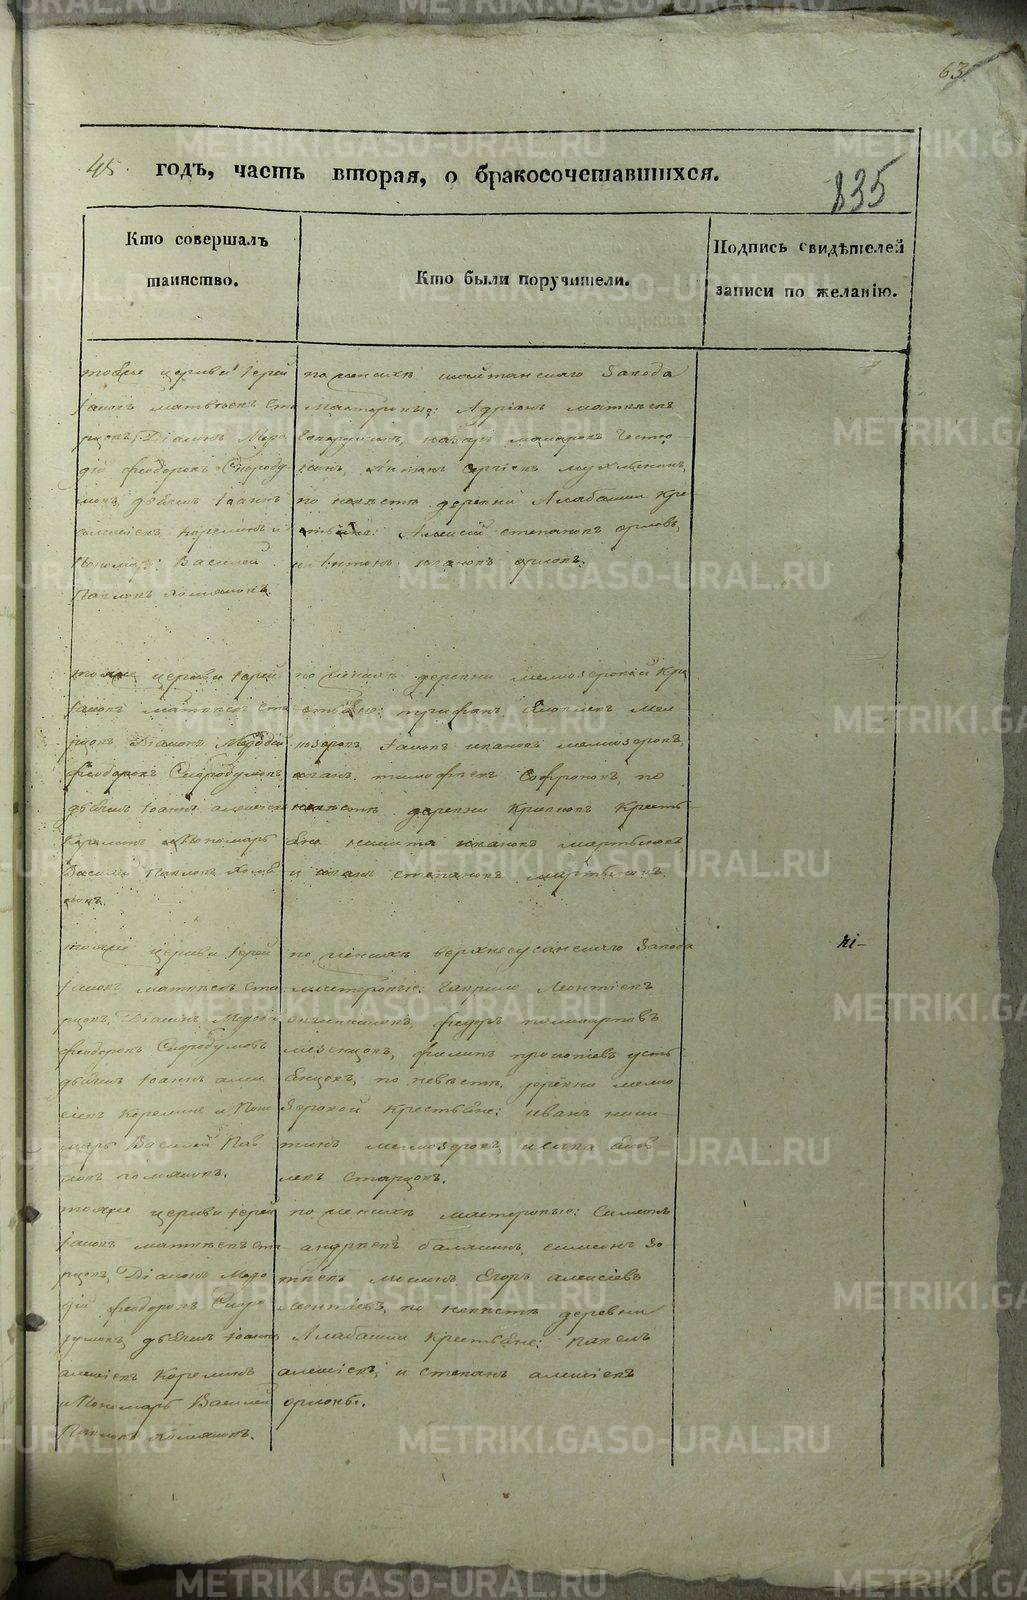 63.
45. годъ, часть вторая, о бракосочетавшихся.
835
Кто совершалъ
таинство.
Кто были поручители.
Подпись свидѣтелей
записи по желанію.
тояже церкви Іерей
Іаковъ матвѣевъ Ста
рцовъ, Діаконъ Меѳо
дій феодоровъ Скороду-
мовъ, дьячекъ Іоаннъ
алексіевъ Корелинъ и
Пономарь Василей
Павловъ Хомяковъ.
по женихѣ шайтанскаго Завода
Мастеровые: Адріанъ матвѣевъ
назаръ макаровъ
Сергіевъ
по невѣстѣ деревни Алабашки Кре
стьяне: Алексій степановъ орловъ,
и Антонъ ивановъ орловъ.
тояже церкви Іерей
Іаковъ матвѣевъ Ста
рцовъ Діаконъ Меѳодій
феодоровъ Скородумовъ,
дьячекъ Іоаннъ алексіевъ
Корелинъ и Пономарь
Василей Павловъ Хомя
ковъ.
по женихѣ деревни мелкозеровой Кре
стьяне: трифанъ Яковлевъ мел
козеровъ, Іаковъ ивановъ мелкозеровъ,
иванъ тимофѣевъ Софроновъ, по
невѣстѣ деревни Кресть-
яне никита ивановъ мартьяновъ
и иванъ степановъ мартьяновъ.
тояже церкви Іерей
Іаковъ матвѣевъ Ста
рцовъ, Діаконъ Меѳодій
феодоровъ Скородумовъ
дьячекъ Іоаннъ алек
сіевъ Корелинъ и Поно
марь Василей Пав
ловъ Хомяковъ.
по женихѣ верхнесусанскаго Завода
мастеровые: Гаврило Леонтіевъ
федръ поликарповъ
мезенцовъ, филипъ прокопіевъ усть
янцовъ, по невѣстѣ, деревни мелко
Зеровой Крестьяне: Иванъ ники-
тинъ мелкозеровъ, Яков-
левъ Старцовъ.
тояже церкви Іерей
Іаковъ матвѣевъ Ста
рцовъ, Діаконъ Меѳо
дій феодоровъ Скоро
думовъ, дьячекъ Іоаннъ
алексіевъ Корелинъ
и Пономарь Василей
Павловъ Хомяковъ.
по женихѣ мастеровые: Симеонъ
андреевъ балакинъ, симеонъ Зо
тѣевъ Егоръ алексіевъ
Леонтіевъ, по невѣстѣ деревни
Алабашки Крестьяне: павелъ
алексіевъ, и степанъ алексіевъ
орловы.
METRIKI.GASO-URAL.RU